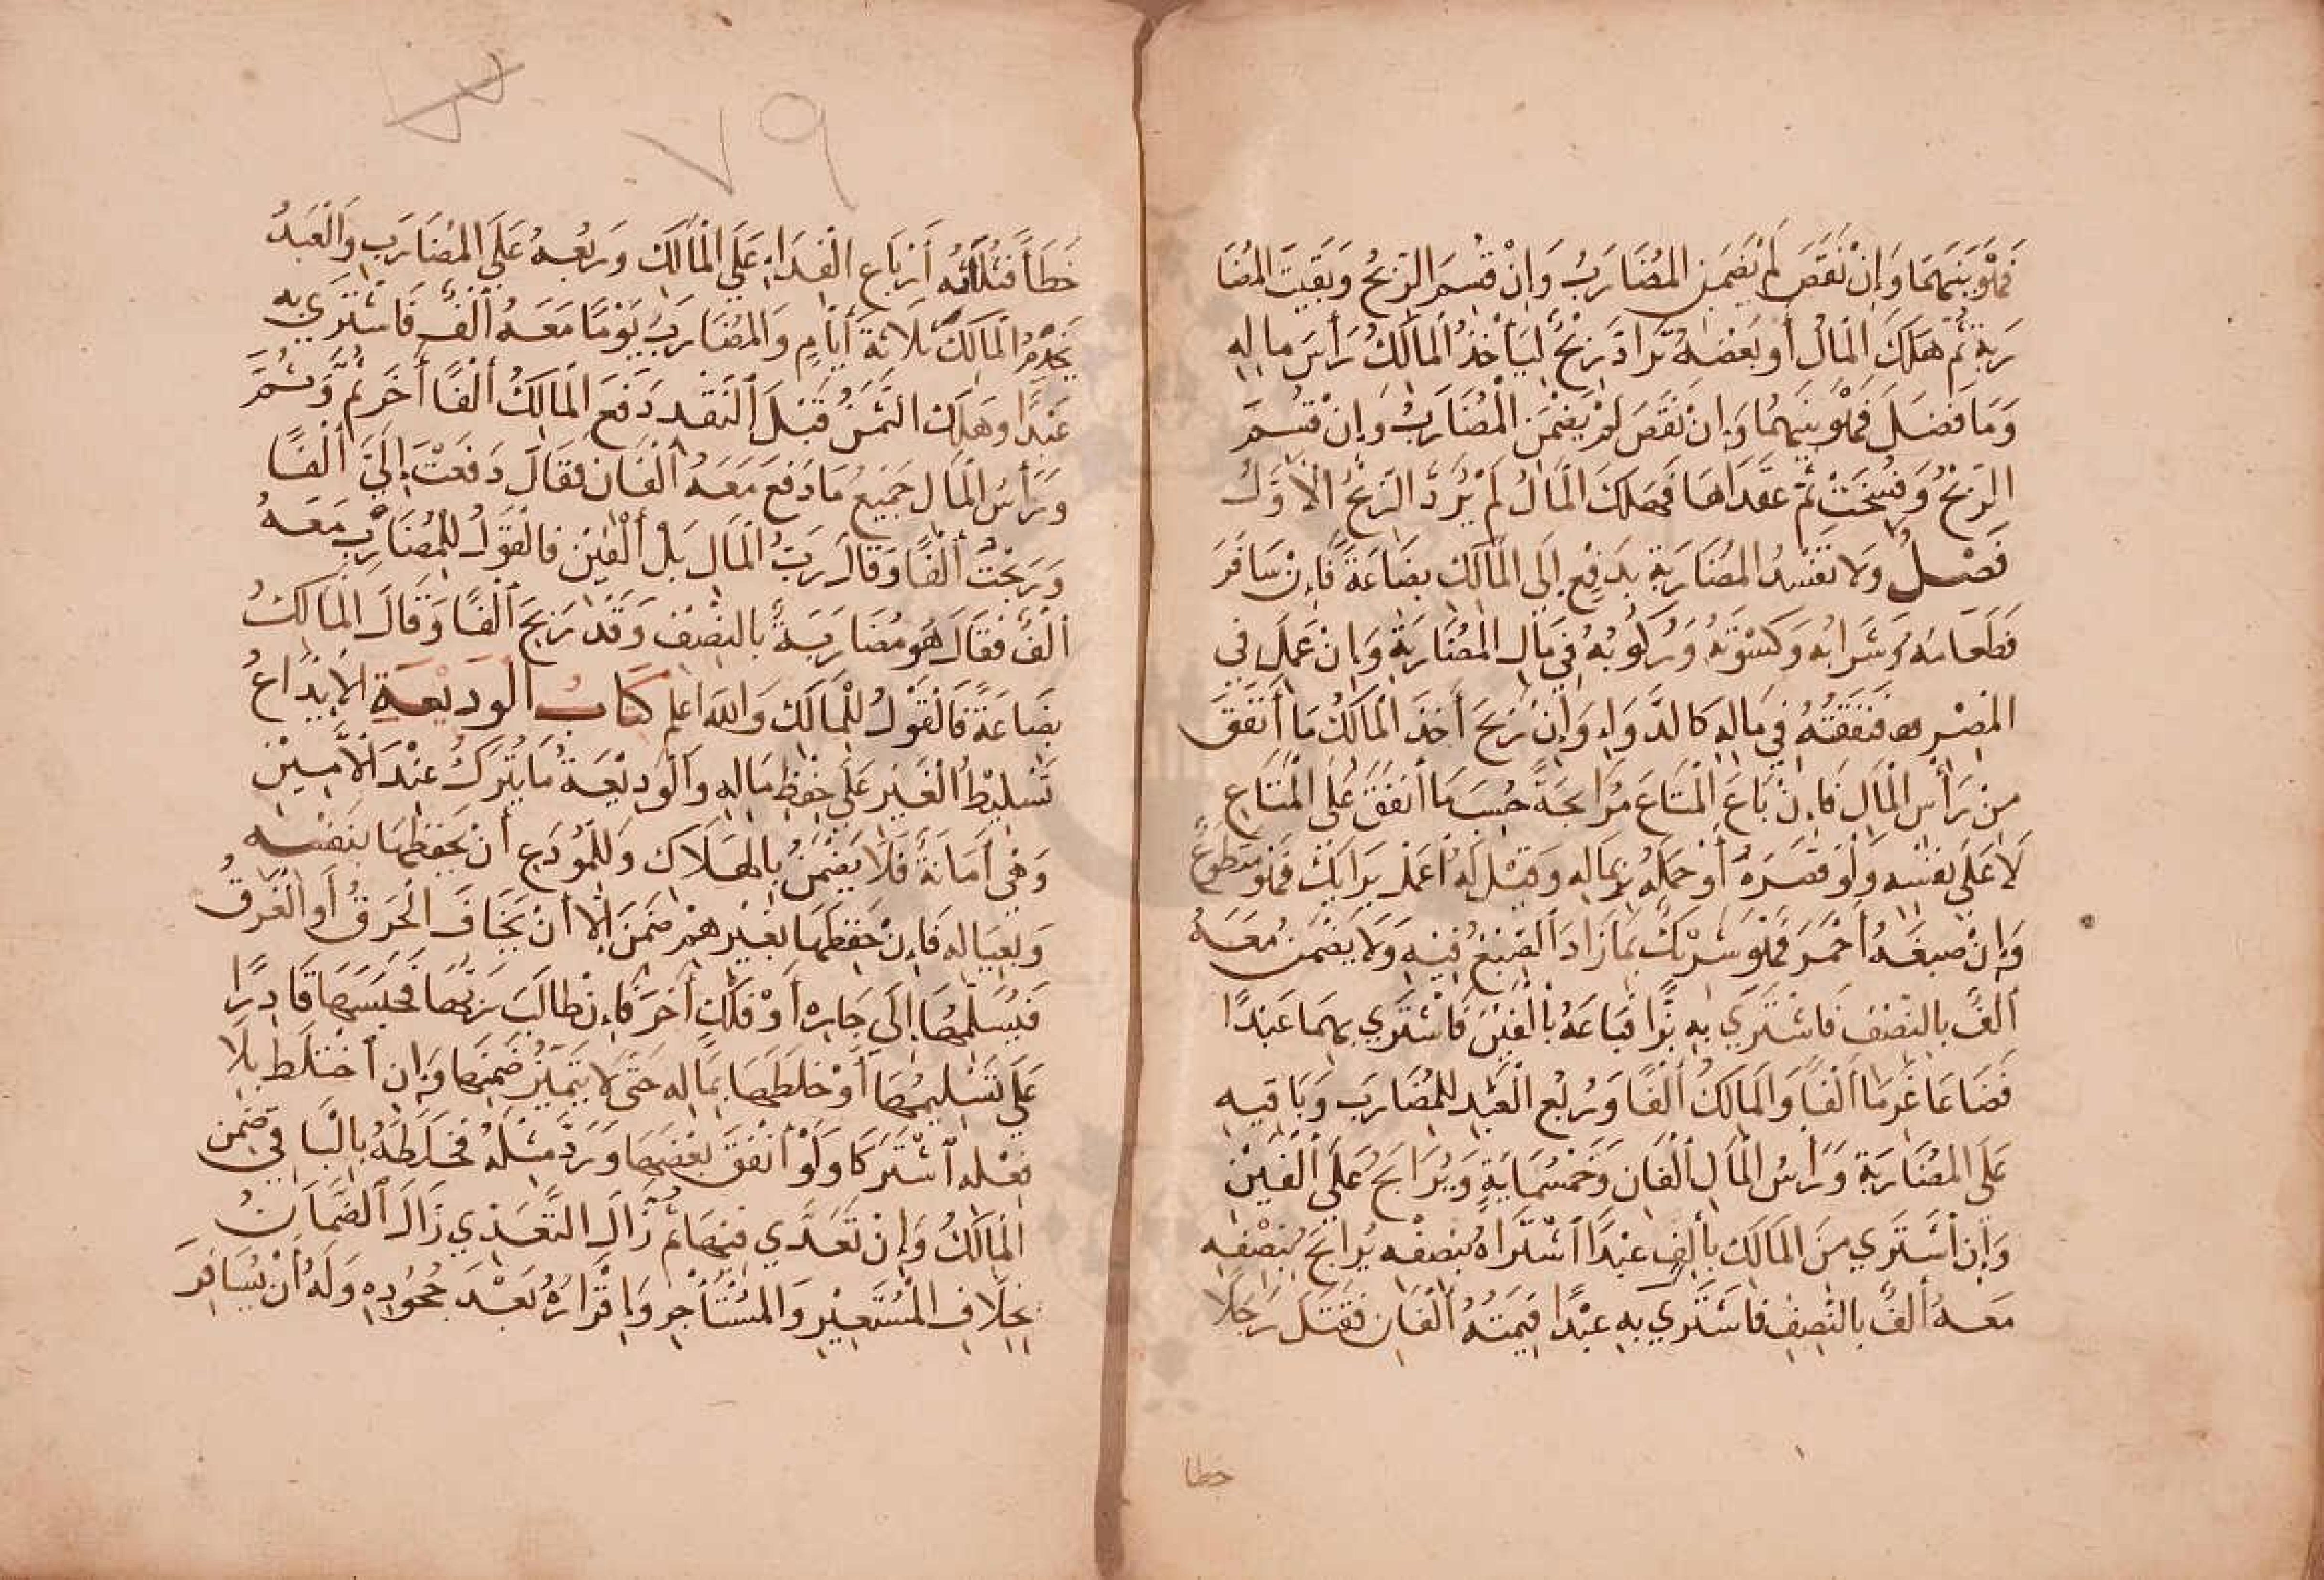 فَهُوَ بَيْنَهُمَا وَإِنْ نَقَصَ لَمْ يَضْمَنِ المُضَارَبُ وَإِنْ قُسِمَ الرِّبْحُ وَبَقِيَتِ المُضَا
رَبَةِ ثُمَّ هَلَكَ الْمَالُ أَوْ بَعْضُهُ تَرَادَّ رِبْحُ لِيَأْخُذَ الْمَالِكُ رَأْسَ مالِهِ
وَمَا فَضَلَ فَهُوَ بَيْنَهُمَا وَإِنْ نَقَصَ لَمْ يَضْمَنِ الْمُضَارَبُ وَإِنْ قُسِمَ
الرِّبْحُ وَفُسِخَتْ ثُمَّ عَقَدَاهَا فَهَلَكَ الْمَالُ لَمْ يُرَدَّ الرِّبْحُ الْأَوَّلُ
فَصْلٌ وَلَا تَفْسُدُ المُضَارَبَةِ بِدَفْعٍ إِلَى الْمَالِكِ بِضَاعَةً فَإِنْ سَافَرَ
فَطَعَامُهُ وَشَرَابُهُ وَكِسْوَتُهُ وَرُكُوبُهُ فِي مَالِ المُضَارَبَةِ وَإِنْ عَمِلَ فِي
المِصْرِ فَنَفَقَتُهُ فِي مَالِهِ كَالدَّوَاءِ وَإِنْ رَبِحَ أَخَذَ الْمَالِكُ مَا أَنْفَقَ
مِنْ رَأْسِ الْمَالِ فَإِنْ بَاعَ الْمَتَاعَ مُرَابَحَةً حُسِبَ مَا أَنْفَقَ عَلَى الْمَتَاعِ
لَا عَلَى نَفْسِهِ وَلَوْ قَصَرَهُ أَوْ حَمَلَهُ بِمَالِهِ وَقِيْلَ لَهُ اعْمَلْ بِرَايِكَ فَهُوَ متطوعٌ
وَإِنْ صَبَغَهُ أَحْمَرَ فَهُوَ شَرِيْكٌ بِمَا زَادَ الصَّبْغُ فِيْهِ وَلَا يَضْمَنُ مَعَهُ
أَلْفٌ بِالنِّصْفِ فَاشْتَرَي بِهِ بَزًّا فَبَاعَهُ بِأَلْفَيْنِ فَاشْتَرَي بِهِمَا عَبْدًا
فَضَاعَا غَرِمَا أَلْفًا وَالْمَالِكُ أَلْفًا وَرُبْعُ الْعَبْدِ لِلمُضَارَبِ وَبَاقِيهِ
عَلَى المُضَارَبَةِ وَرَأْسُ الْمَالِ أَلْفَانِ وَخَمْسُمِايَةٍ وَيُرَابِحُ عَلَى أَلْفَيْنِ
وَإِنِ اشْتَرَي مِنَ الْمَالِكِ بِأَلْفٍ عَبْدًا اشْتَرَاهُ بِنِصْفِهِ يُرَابِحُ بِنِصْفِهِ
مَعَهُ أَلْفٌ بِالنِّصْفِ فَاشْتَرَي بِهِ عَبْدًا قِيمَتُهُ أَلْفَانِ فَقَتَلَ رَجُلًا
خطا
٧٩
خَطَأً فَثَلَاثَةُ أَرْبَاعِ الْفِدَاءِ عَلَى الْمَالِكِ وَرُبْعُهُ عَلَى المُضَارَبِ وَالْعَبْدُ
يَخْدِمُ الْمَالِكَ ثَلَاثَةَ أَيَّامٍ وَالمُضَارَبَ يَوْمًا مَعَهُ أَلْفٌ فَاشْتَرَي بِهِ
عَبْدًا وَهَلَكَ الثَّمَنُ قَبْلَ النَّقْدِ دَفَعَ الْمَالِكُ أَلْفًا أَخَرَ ثُمَّ وَثُمَّ
وَرَأْسُ الْمَالِ جَمِيْعُ مَا دَفَعَ مَعَهُ أَلْفَانِ فَقَالَ دَفَعْتَ إِلَيَّ أَلْفًا
وَرَبِحْتُ أَلْفًا وَقَالَ رَبُّ الْمَالِ بَلْ أَلْفَيْنِ فَالْقَوْلُ لِلْمُضَارَبِ مَعَهُ
أَلْفٌ فَقَالَ هُوَ مُضَارَبَةٌ بِالنِّصْفِ وَقَدْ رَبِحَ أَلْفًا وَقَالَ الْمَالِكُ
بِضَاعَةً فَالْقَوْلُ لِلْمَالِكِ وَاللّٰهُ اعلم كِتَابُ الْوَدِيْعَةِ الْإِيْدَاعُ
تَسْلِيْطُ الْغَيْرِ عَلَى حِفْظِ مَالِهِ وَالْوَدِيْعَةُ مَا يُتْرَكُ عِنْدَ الْأَمِيْنِ
وَهِيَ أَمَانَةٌ فَلَا يَضْمَنُ بِالْهَلَاكِ وَلِلْمُوْدَعِ أَنْ يَحْفَظَهَا بِنَفْسِهِ
وَبِعِيَالِهِ فَإِنْ حَفِظَهَا بِغَيْرِهِمْ ضَمِنَ إِلَّا أَنْ يَخَافَ الْحَرَقَ أَوِ الْغَرَقَ
فَيُسَلِّمُهَا إِلَى جَارِهِ أَوْ فُلْكٍ أَخَرَ فَإِنْ طَالَبَ رَبُّهَا فَحَبَسَهَا قَادِرًا
عَلَى تَسْلِيمِهَا أَوْ خَلَطَهَا بِمَالِهِ حَتَّى لَا يَتَمَيَّزُ ضَمِنَهَا وَإِنِ اخْتَلَطَ بِلَا
فِعْلِهِ اشْتَرَكَا وَلَوْ أَنْفَقَ بَعْضَهَا وَرَدَّ مِثْلَهُ فَخَلَطَهُ بِالْبَاقِي ضَمِنَ
الْمَالِكُ وَإِنْ تَعَدَّي فِيْهَا ثُمَّ زَالَ التَّعَدِّي زَالَ الضَّمَانُ
بِخِلَافِ الْمُسْتَعِيْرِ وَالْمُسْتَأْجِرِ وَإِقْرَارُهُ بَعْدَ جُحُوْدِهِ وَلَهُ أَنْ يُسَافِرَ